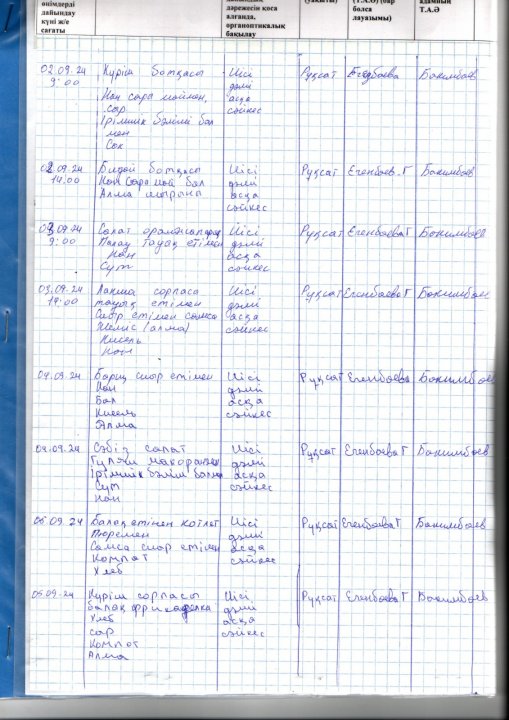 өнімдерді
дайындау
күні ж/е
сағаты
дәрежесін қоса
алғанда,
органоптикалық
бақылау
(уақыты)
(Т.А.Ә) (бар
болса
лауазымы)
адамның
Т.А.Ә
02.09.24 Күріш ботқасы Иісі Рұқсат Бакимбаев
9:00 дәмі
Нан сары маймен, асқа
сыр сәйкес
Ірімшік бәліші бал
мен
Сок
02.09.24 Бидай ботқасы Иісі Рұқсат Егенбаева Г Бакимбаев
14.00 Нан Сары май бал дәмі
Алма шырыны асқа
сәйкес
03.09.24 Салат Иісі Рұқсат Егенбаева Г Бакимбаев
9:00 Палау тауық етімен дәмі
Нан асқа
Сүт сәйкес
03.09.24 Лапша сорпасы Иісі Рұқсат Егенбаева Г Бакимбаев
14:00 тауық етімен дәмі
Сиыр етімен самса асқа
Жеміс (алма) сәйкес
Кисель
Нан
04.09.24 Борщ сиыр етімен Иісі Рұқсат Егенбаева Бакимбаев
Нан дәмі
Бал асқа
Кисель сәйкес
Алма
04.09.24 Сәбіз салат Иісі Рұқсат Егенбаева Г Бакимбаев
Гуляш макаронмен дәмі
Ірімшік бәліш балмен асқа
Сүт сәйкес
Нан
05.09.24 Балық етінен котлет Иісі Рұқсат Егенбаева Г Бакимбаев
Пюремен дәмі
Самса сиыр етімен асқа
Компот сәйкес
Хлеб
05.09.24 Күріш сорпасы Иісі Рұқсат Егенбаева Г Бакимбаев
балық фрикаделка дәмі
Хлеб асқа
сыр сәйкес
Компот
Алма